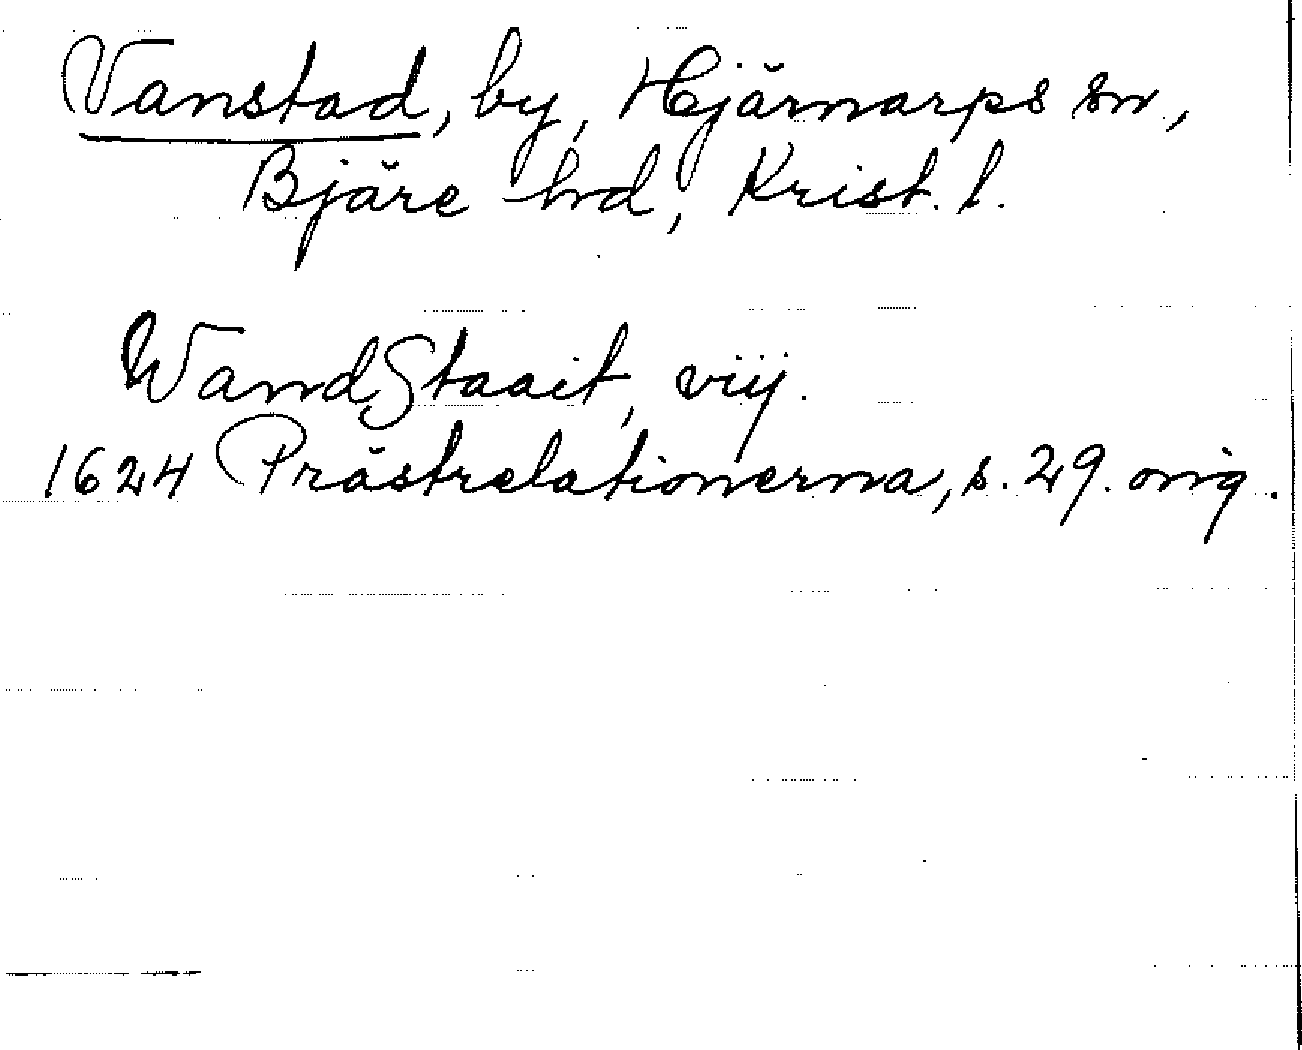 Vanstad, by, Hjärnarps sn,
Bjäre hd, Krist. l.
WandStaait, vij.
1624 Prästrelationerna, s. 29. orig.